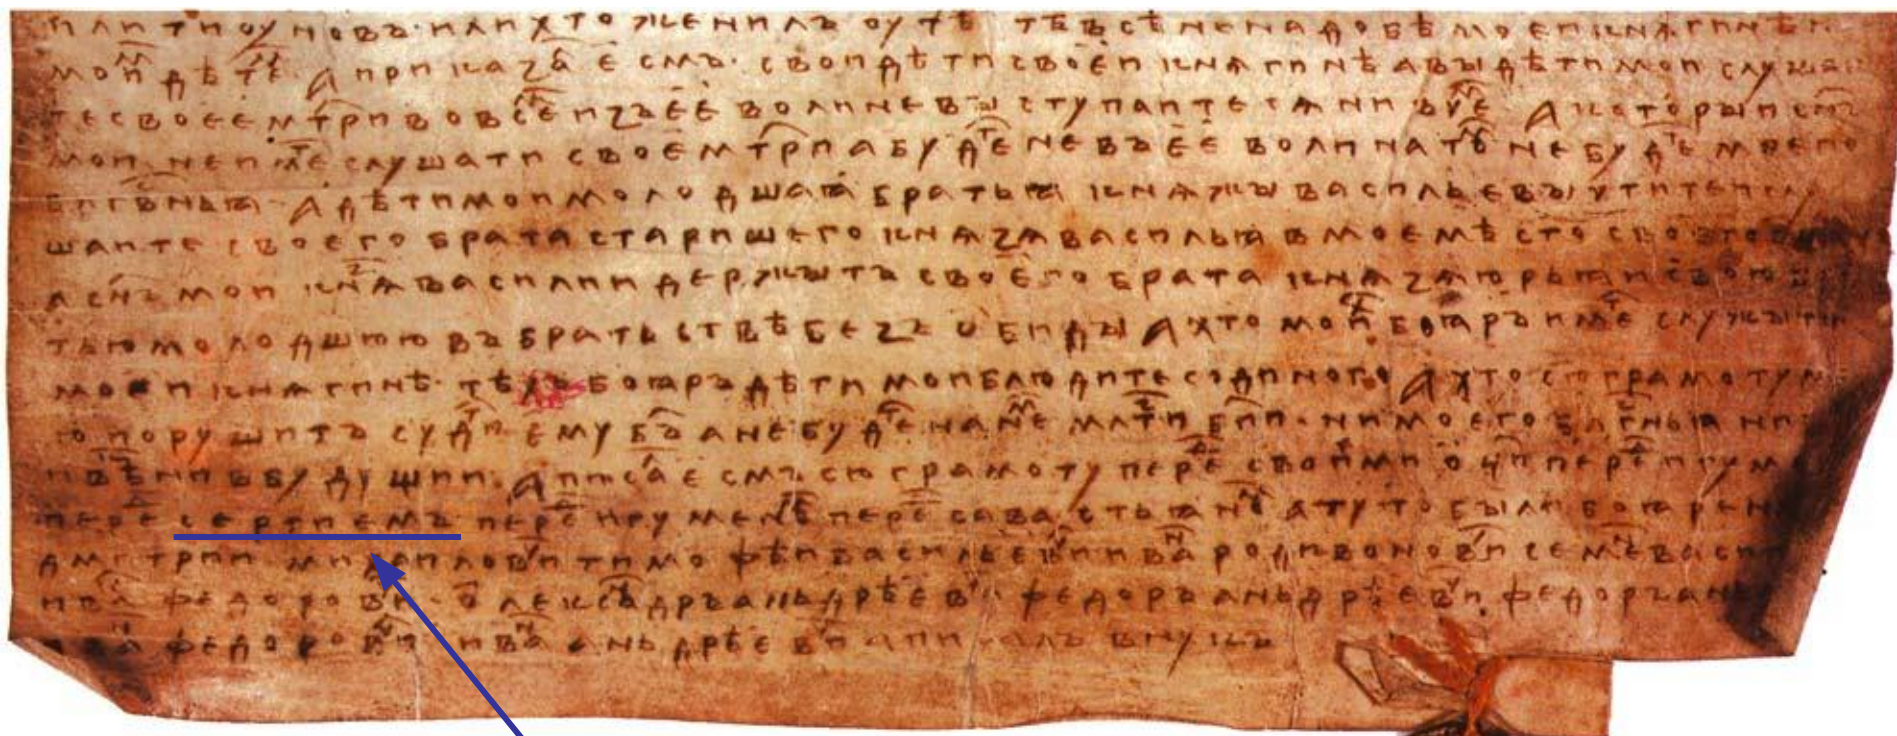 или тиоуновъ · или хто женилъ оу тѣ тѣ всѣ не надобѣ моеи кнѧгинѣ и
мои дѣте · А приказа есмь · свои дѣти своеи кнѧгинѣ а вы дѣти мои слушаи
те своее мтри во всє изъ ее воли не выступаите сѧ ни в че А которыи снъ
мои не име слушати свое мтри а буде не въ ее воли на то не буде моего
блгвньꙗ · А дѣти мои молодшаꙗ братьꙗ кнѧжы васильевы чтите и слу
шаите своего брата старишего кнѧзѧ васильꙗ в мое мѣсто своего
а снъ мои кнѧ василии держыть своего брата кнѧзѧ юрьꙗ и свою
тью молодшюю въ братьствѣ безъ обиды А хто мои боꙗръ име служыти
моеи кнѧгинѣ · тѣхъ боꙗръ дѣти мои блюдите содиного А хто сю грамоту м
ю порушить суди ему бъ а не буде на не млти бжии · ни моего блгвньꙗ ни
в вѣ ни в будущии · А писа есмь сю грамоту пере своими оци пере игуме
пере сергиемь пере игумено пере севастьꙗно А ту то были боꙗре н
дмитрии михаилови тимофѣи васильеви ива родивонови семе васи
ива федорови · олексадръ аньдрѣеви федоръ аньдрѣеви федоръ ань
ива федорови ива аньдрѣеви а писалъ внукъ